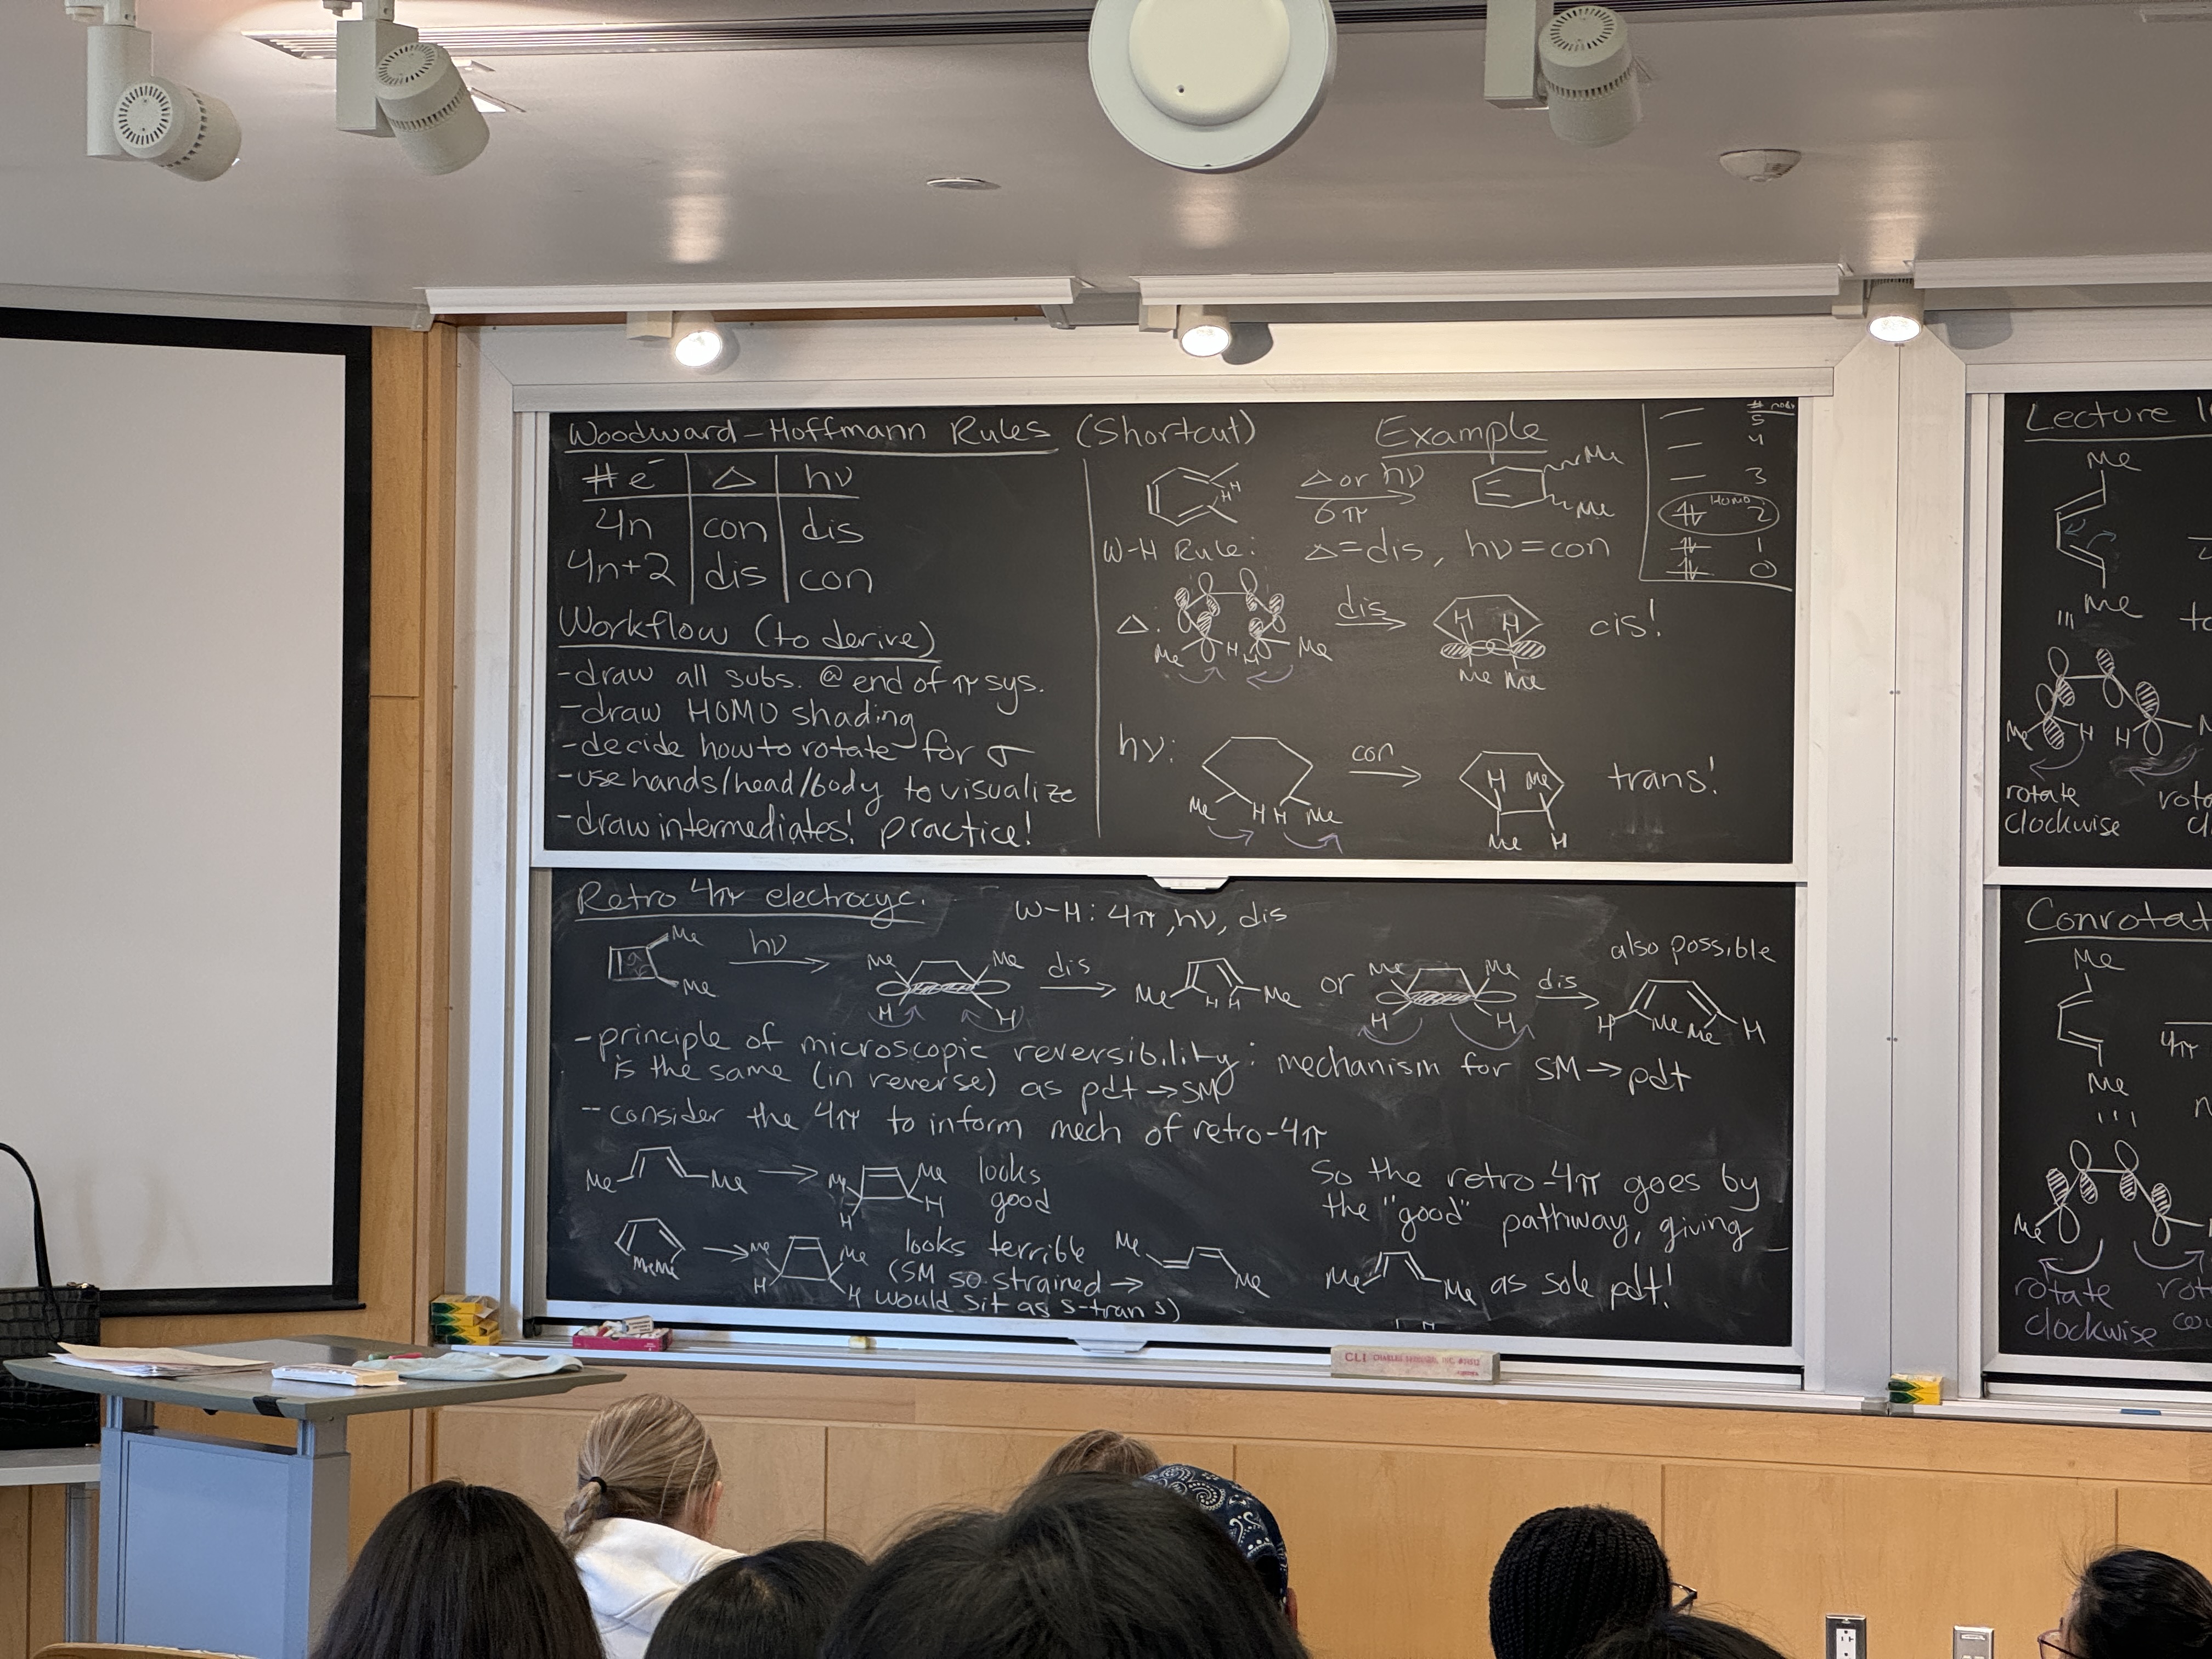 Woodward-Hoffmann Rules (Shortcut)
#e⁻ △ hν
4n con dis
4n+2 dis con
Workflow (to derive)
-draw all subs. @ end of π sys.
-draw HOMO shading
-decide how to rotate for σ
-use hands/head/body to visualize
-draw intermediates! practice!
Example
H
H
△ or hν
6π
Me
Me
W-H Rule: △=dis, hν=con
# nodes
5
4
3
HOMO 2
1
0
△:
Me H H Me
dis
H H
Me Me
cis!
hν:
Me H H Me
con
H Me
Me H
trans!
Retro 4π electrocyc.
W-H: 4π, hν, dis
Me
Me
hν
Me Me
H H
dis
Me H H Me
or
Me Me
H H
dis
also possible
H Me Me H
-principle of microscopic reversibility: mechanism for SM→pdt
is the same (in reverse) as pdt→SM
-consider the 4π to inform mech of retro-4π
Me Me
Me Me
H H
looks
good
MeMe
Me Me
H H
looks terrible
(SM so strained →
would sit as s-trans)
Me
Me
So the retro-4π goes by
the "good" pathway, giving
Me Me as sole pdt!
CLI
Lecture
Me
Me
Me H H
rotate
clockwise
Conrotat
Me
Me
4π
Me
rotate
clockwise